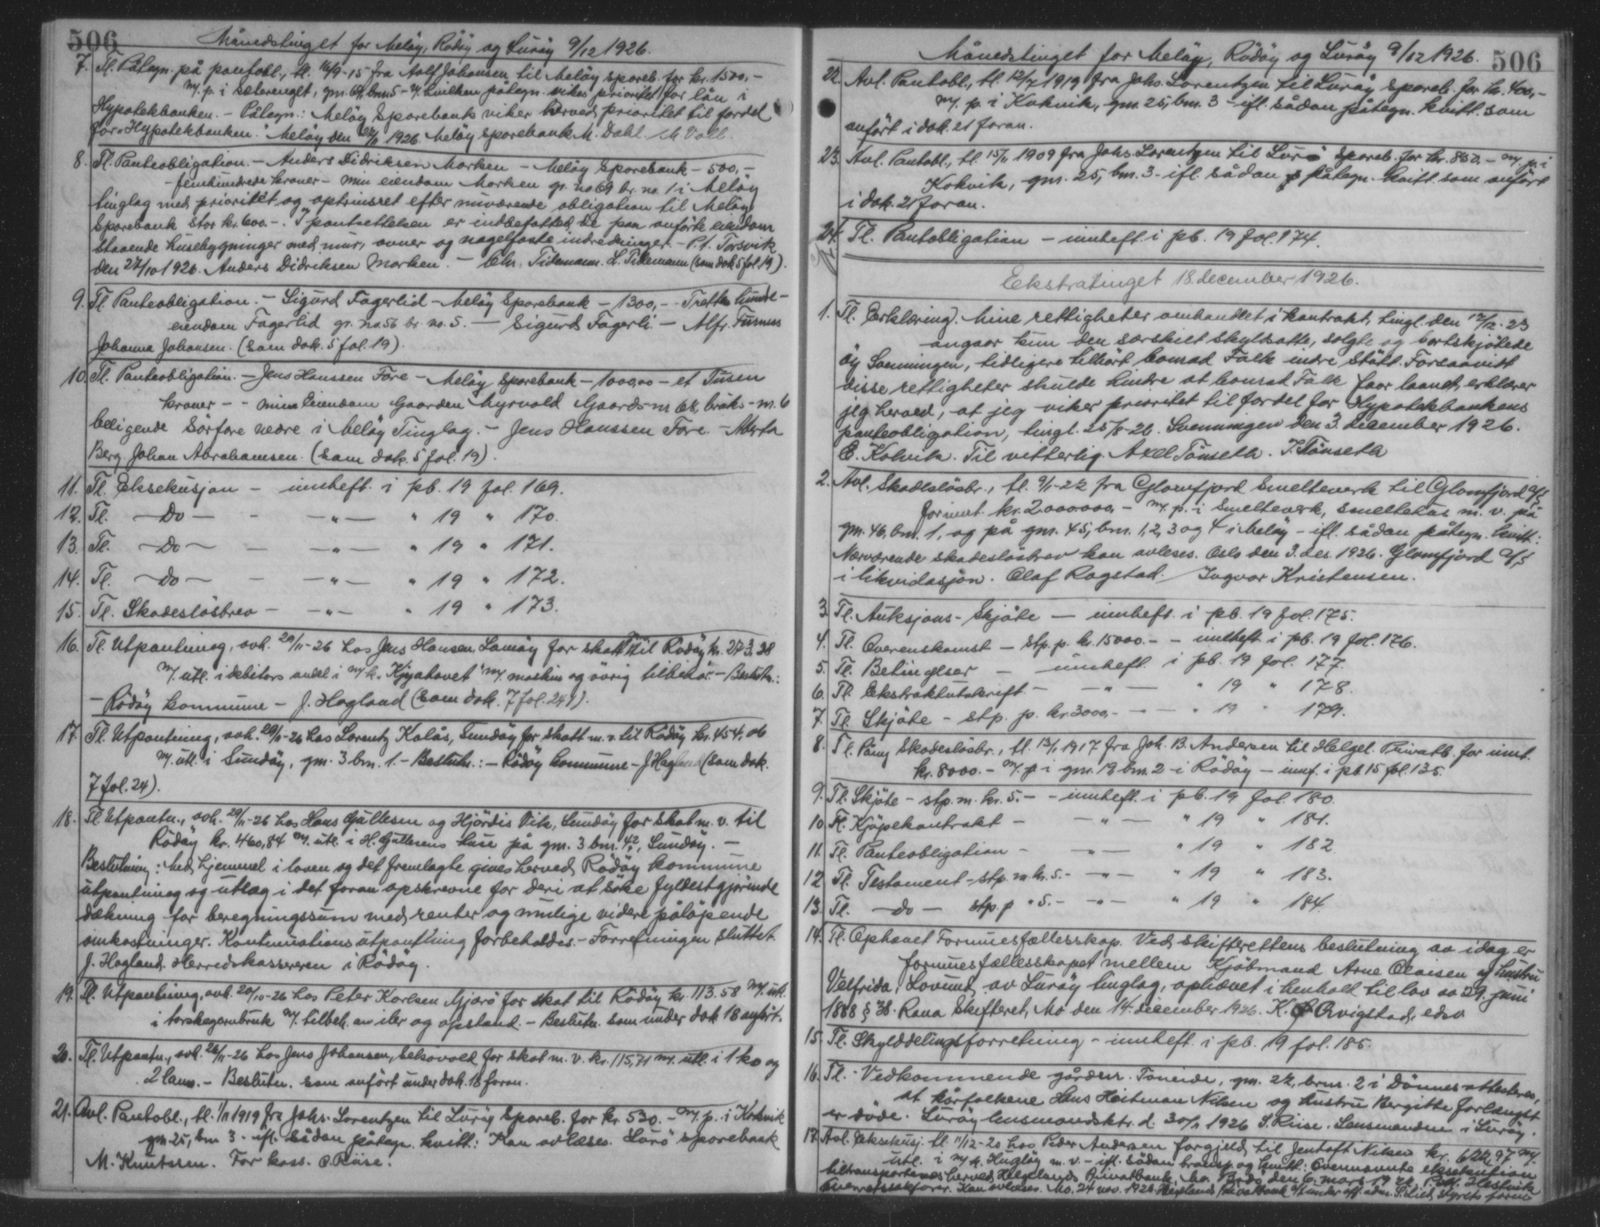 506
Månedstinget for Meløy, Rödøy og Lurøy 9/12 1926.
7. Tl. Påtegn. på pantobl., tl. 16/9-15 fra Adolf Johansen til Meløy spareb. for kr. 1500,-
m. p. i gnr. 64, bnr. 5 - v. hvilken påtegn. vikes prioritet for lån i
Hypotekbanken. - Påtegn: Meløy Sparebank viker herved prioritet til fordel
for Hypotekbanken. Meløy den 1926 Meløy Sparebank M. Dahl.
8. Tl. Panteobligation. - Anders Didriksen Marken - Meløy Sparebank - 500,-
- femhundrede kroner - min eiendom Marken gr. no 69 br. no 1 i Meløy
tinglag med prioritet og optrinsret efter nuværende obligation til Meløy
Sparebank stor kr. 600. - I pantsettelsen er indbefattet de paa anførte eiendom
staaende husebygninger med mur, ovner og nagelfaste indredninger. - P.t. Torsvik
den 27/10 1926. Anders Didriksen Marken. - Chr. Tidemann. L. Tidemann (som dok 5 fol. 19).
9. Tl. Panteobligation. - Sigurd Fagerlid - Meløy Sparebank - 1300,- - Tretten hundre -
eiendom Fagerlid gr. no. 56 br. no. 5. - Sigurd Fagerli - Alfr.
Johanna Johansen. (som dok. 5 fol. 19).
10. Tl. Panteobligation. - Jens Hanssen Före - Meløy Sparebank - 1000,00 - et Tusen
kroner - - min Eiendom Gaarden Myrvold Gaardsnr. 68, bruks-nr. 6
beligende Sörfore nedre i Meløy Tinglag. - Jens Hanssen Fore. -
Berg. Johan Abrahamsen. (som dok. 5 fol. 19).
11. Tl. Eksekusjon - innheft. i pb. 19 fol. 169.
12. Tl. - Do - - " - " 19 " 170.
13. Tl. - Do - - " - " 19 " 171.
14. Tl. - Do - - " - " 19 " 172.
15. Tl. Skadesløsbrev - - " - " 19 " 173.
16. Tl. Utpantning, avh. 20/11-26 hos Jens Hansen, for skatt til Rödøy kr. 273.38
m/ utl. i debitors andel i m/k. m/ maskin og övrig tilbehör. - Beslutn.:
- Rödøy kommune - J. Hagland (som dok. 7 fol. 24).
17. Tl. Utpantning, avh. 20/11-26 hos Lorentz Kalås, Sundøy for skatt m.v. til Rødøy kr. 454.06
m/ utl. i Sundøy, gnr. 3 bnr. 1. - Beslutn.: - Rödøy kommune - J. Hagland (som dok.
7 fol. 24).
18. Tl. Utpantn., avh. 20/11-26 hos Hans Gullesen og Hjördis Vik, Sundøy for skat m.v. til
Rödøy kr. 460,84 m/ utl. i H. Gullesens huse på gnr. 3 bnr. 42, Sundøy. -
Beslutning: Med hjemmel i loven og det fremlagte gives herved Rødøy kommune
utpantning og utlæg i det foran opskrevne for deri at søke fyldestgjørende
dækning for beregningssum med renter og mulige videre påløpende
omkostninger. Kontinuationsutpantning forbeholdes. - Forretningen sluttet
J. Hagland. Herredskasserer i Rödøy.
19. Tl. Utpantning, avh. 20/11-26 hos Peter Karlsen for skat til Rödøy kr. 113.58 m/ utl.
i torskegarnbruk m/ tilbeh. av iler og opstand. - Beslutn. som under dok 18 anført.
20. Tl. Utpantn., avh. 26/11-26 hos Jens Johansen, Selsovold for skat m.v. kr. 115,71 m/ utl. i 1 ko og
2 lam. - Beslutn. som anført under dok. 18 foran.
21. Avl. Pantobl., tl. 1/11 1919 fra Johs. Lorentzen til Lurøy Spareb. for kr. 530.- m/ p. i Kokvik
gnr. 25, bnr. 3 - ifl. sådan påtegn. kvitt.: Kan avlæses. Lurö Sparebank
M. Knutssen. For kass. O. Riise.
Månedstinget for Meløy, Rödøy og Lurøy 9/12 1926. 506
22. Avl. Pantobl., tl. 12/7 1919 fra Johs. Lorentzen til Lurøy Spareb. for kr. 400,-
m/ p. i Kokvik, gnr. 25, bnr. 3 - ifl. sådan påtegn. kvitt. som
anført i dok. 21 foran.
23. Avl. Pantobl., tl. 15/11 1909 fra Johs. Lorentzen til Lurö Spareb. for kr. 850.- m/ p. i
Kokvik, gnr. 25, bnr. 3 - ifl. sådan påtegn. kvitt. som anført
i dok. 21 foran.
24. Tl. Pantobligation - innheft. i pb. 19 fol. 174.
Ekstratinget 18. december 1926.
1. Tl. Erklæring. Mine rettigheter omhandlet i kontrakt, tingl. den 12/12-23
angaar kun den særskilt skyldsatte, solgte og bortskjötede
öy Sonningen, tidligere tilhört Conrad Falk indre Stöt. Forsaavidt
disse rettigheter skulde hindre at Conrad Falk faar laanet, erklærer
jeg herved, at jeg viker prioritet til fordel for Hypotekbankens
panteobligation, tingl. 25/8-26. Svenningen den 3. december 1926.
E. Kokvik. Til vitterlig: Axel Tönseth. J. Tönseth
2. Avl. Skadesløsbr., tl. 9/1-22 fra Glomfjord Smelteverk til Glomfjord A/S
for inntil kr. 2000000,- m/ p. i Smelteverk, smeltehus m. v. på
gnr. 46, bnr. 1, og på gnr. 45, bnr. 1, 2, 3 og 4 i Meløy - ifl. sådan påtegn. kvitt.:
Nærværende skadesløsbrev kan avleses. Oslo den 3. des. 1926. Glomfjord A/S
i likvidasjon. Olaf Rogstad. Ingvar Kristensen.
3. Tl. Auksjons-Skjöte - innheft. i pb. 19 fol. 175.
4. Tl. Overenskomst - stp. p. kr 15000.- - innheft. i pb. 19 fol. 176.
5. Tl. Betingelser - innheft. i pb. 19 fol. 177.
6. Tl. Ekstraktutskrift - - " - " 19 " 178.
7. Tl. Skjöte - stp. p. kr. 3000,- - - " 19 " 179.
8. Tl. Skadesløsbr., tl. 13/1 1917 fra Joh. B. Andersen til Helgel. Privatb. for innt.
kr. 8000.- m/ p. i gnr. 13 bnr. 2 i Rödøy - innf. i pb. 15 fol. 135.
9. Tl. Skjöte - stp. m. kr. 5.- - innheft. i pb. 19 fol. 180.
10. Tl. Kjöpekontrakt - - " - " 19 " 181.
11. Tl. Panteobligation - - " - " 19 " 182
12. Tl. Testament - stp. m kr. 5.- - " - " 19 " 183.
13. Tl. - do - stp. p " 5.- - " - " 19 " 184
14. Tl. Ophævet Formuesfællesskap. Ved skifterettens beslutning av idag er
formuesfællesskapet mellem Kjöbmand Arne Olaisen og hustru
Velfrida, Lovund av Lurøy tinglag, ophævet i henhold til lov av 29. juni
1888 § 38. Rana Skifteret, Mo den 14. december 1926. K. O. Arvigstad, edsv
15. Tl. Skylddelingsforretning - innheft. i pb. 19 fol. 185.
16. Tl. - Vedkommende gården Toneide, gnr. 22, bnr. 2 i Dönnes
at kårfolkene Hans Hoitman Nilsen og hustru Bergitte forlængst
er døde. Lurøy lensmandsktr. d. 30/11 1926 S. Riise. Lensmanden i Lurøy.
17. Avl. Eksekusj. tl. 11/12-20 hos Peder Andersen for gjeld til Jentoft Nilsen kr. 622.97 m/
utl. i m/k. Hugløy m. v. - ifl. sådan transp. og kvitt.: Overnævnte eksekution
transporteres herved Helgelands Privatbank, Mo. Bodö den 6. mars 19
Overretssakfører. Kan avlæses. Mo. 24 nov. 1926 Helgelands Privatbank A/S under off. adm.